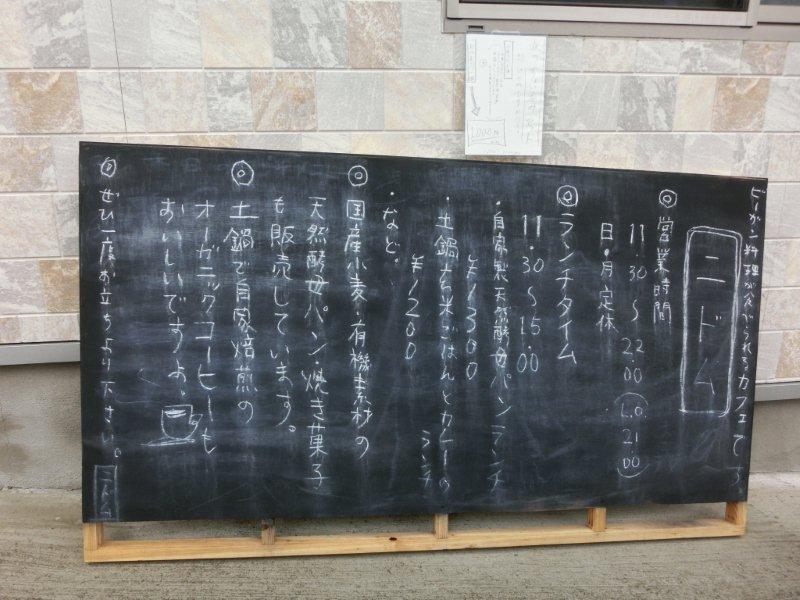 ビーガン料理が食べられるカフェです
ニドム
◎営業時間
11.30～22.00(L.O.21.00)
日・月定休
◎ランチタイム
11.30～15.00
・自家製天然酵母パンランチ
¥1300
・土鍋古米ごはんとカレーのランチ
¥1200
・など。
◎国産小麦・有機素材の
天然酵母パン・焼き菓子
も販売しています。
◎土鍋で自家焙煎の
オーガニックコーヒーも
おいしいですよ
◎ぜひ一度お立ちより下さい。
ニドム
1,000円